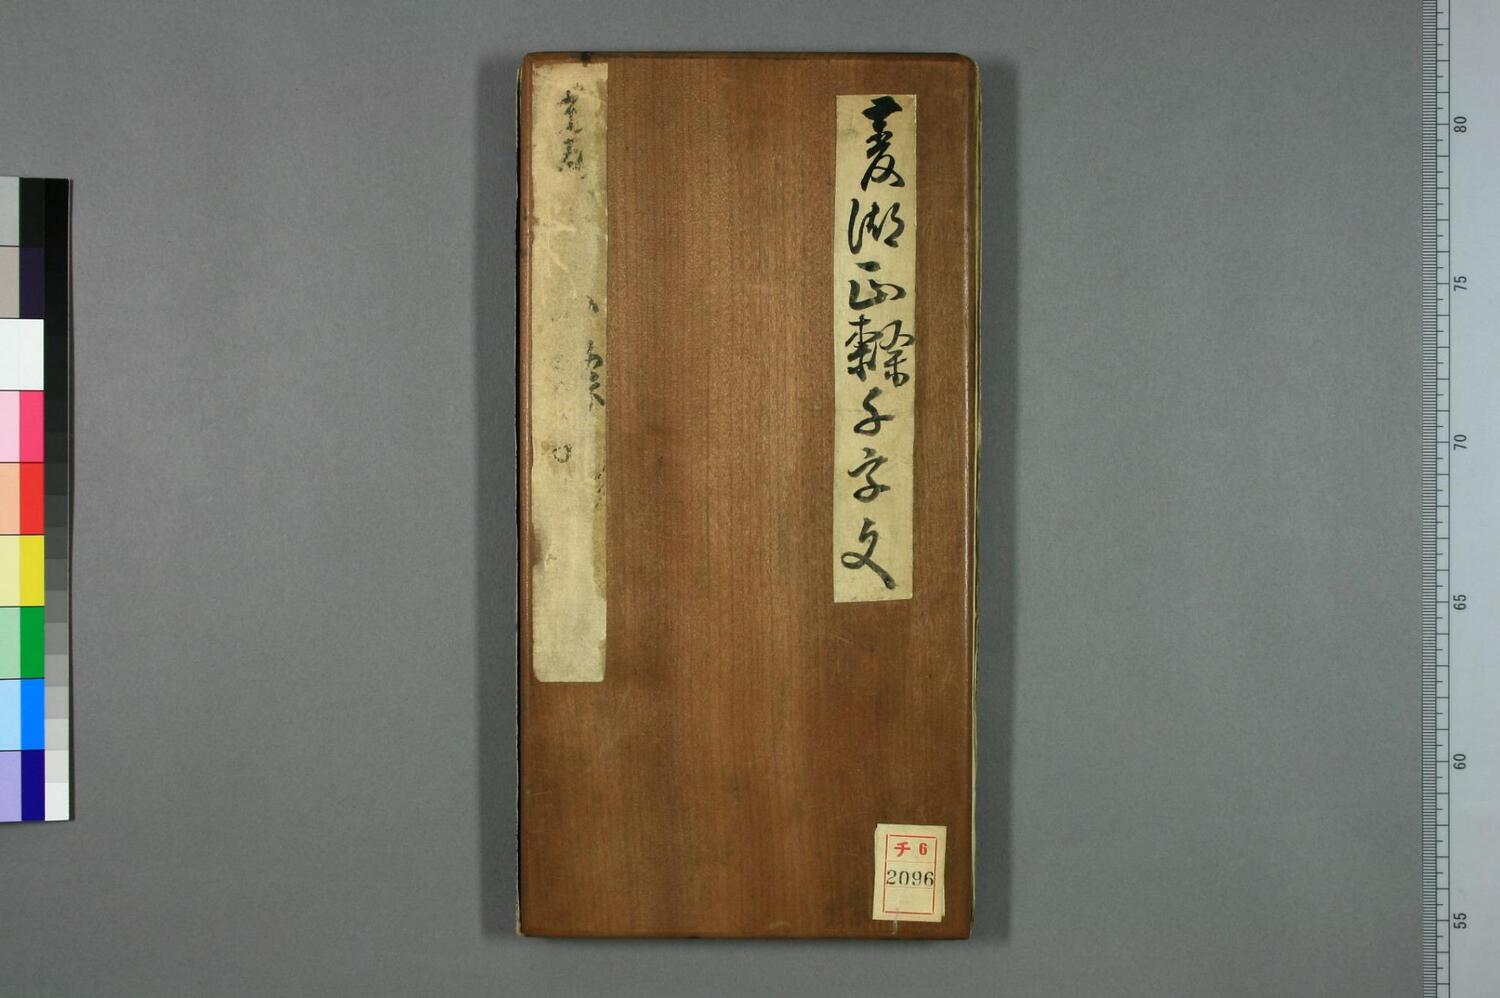 菱湖正隷千字文
チ 6
2096
80
75
70
65
60
55